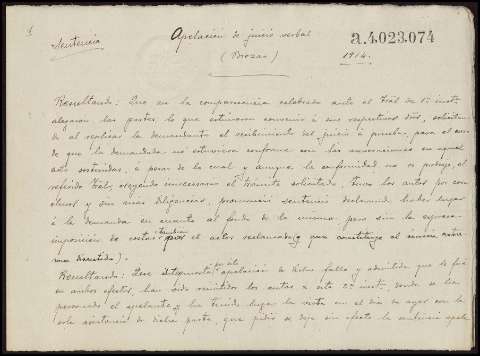 Apelación de juicio verbal
a.4.023.074
Sentencia
(Brozas)
1914.
Resultando: Que en la comparecencia celebrada ante el Tral. de 1ª inst.
alegaron las partes lo que estimaron convenir á sus respectivos dros, solicitan-
do al replicar la demandante el recibimiento del juicio á prueba, para el caso
de que la demandada no estuviera conforme con las en aquel
acto sostenidas, á pesar de lo cual y aunque la conformidad no se produjo, el
referido Tral, creyendo innecesario el trámite solicitado, tuvo los autos por con-
clusos y sin mas diligencias, pronunció sentencia declarando haber lugar
á la demanda en cuanto al fondo de la misma pero sin la expresa
imposición de costas también por el actor reclamada (y que constituye el único extre-
mo discutido).
Resultando: Que interpuesta apelación de dicho fallo y admitida que le fué
en ambos efectos, han sido remitidos los autos a este 2ª inst, donde se ha
personado el apelante y ha tenido lugar la vista en el día de ayer con la
sola asistencia de dicha parte, que pidió se deje sin efecto la sentencia apela-